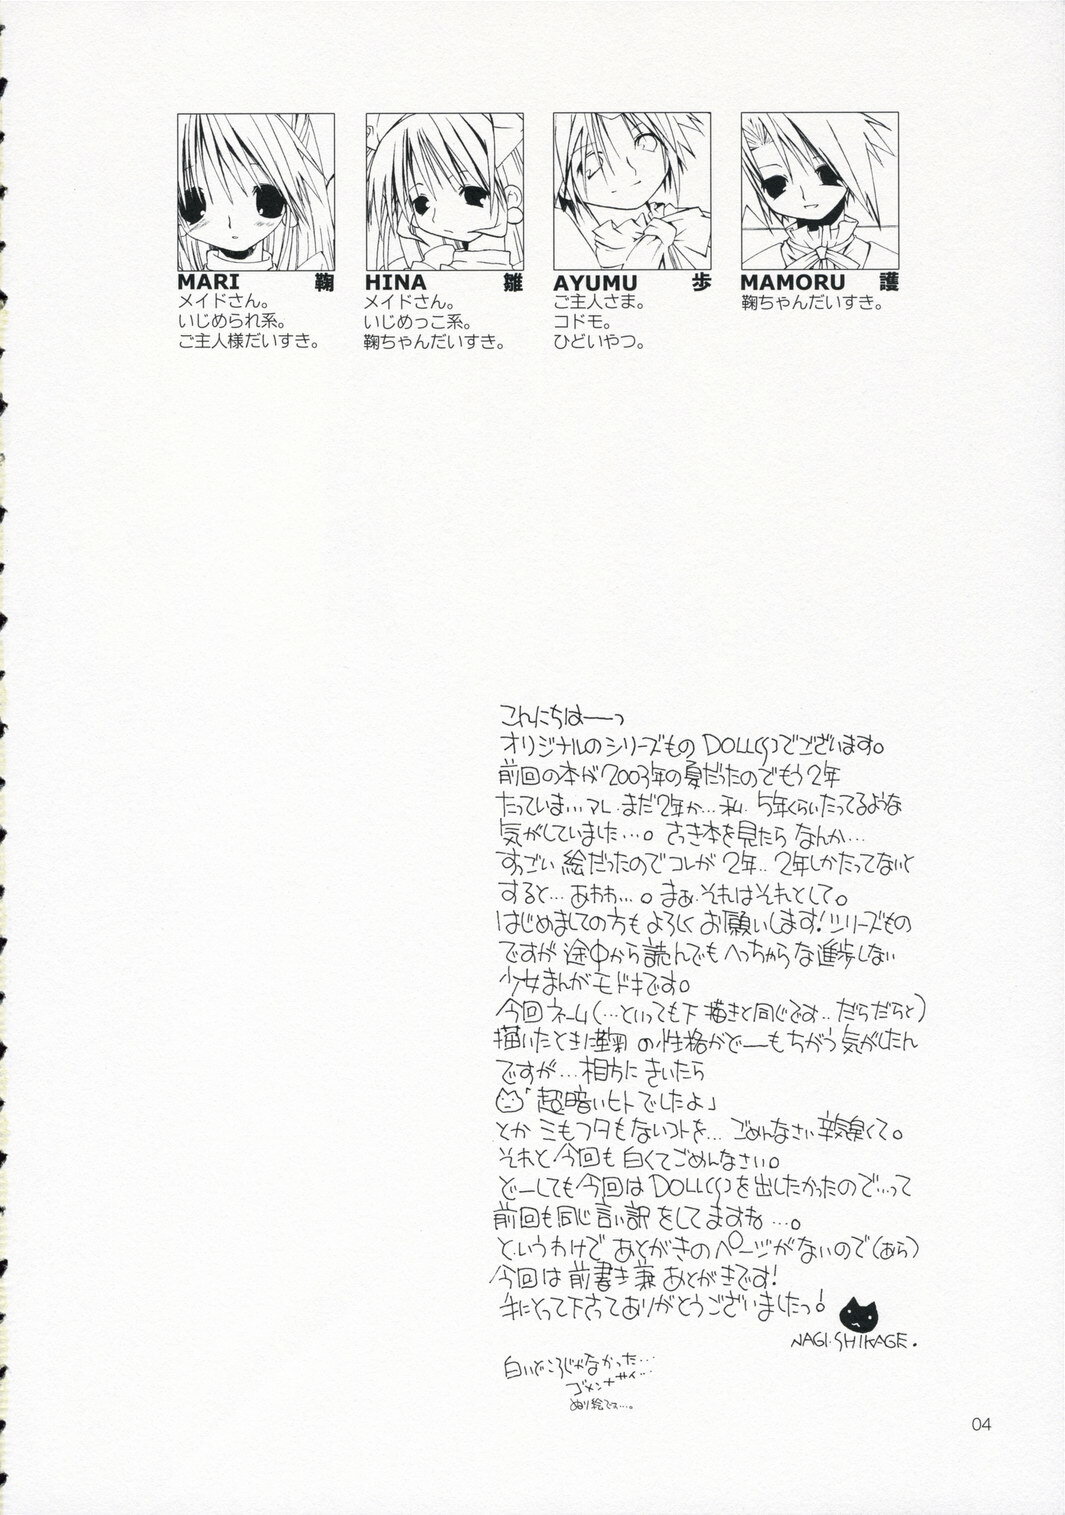 MARI 鞠
メイドさん。
いじめられ系。
ご主人様だいすき。
HINA 雛
メイドさん。
いじめっこ系。
鞠ちゃんだいすき。
AYUMU 歩
ご主人さま。
コドモ。
ひどいやつ。
MAMORU 護
鞠ちゃんだいすき。
こんにちはーっ
オリジナルのシリーズもの DOLL(S)でございます。
前回の本が2003年の夏だったのでもう2年
たっていま…アレ、まだ2年か…私、5年くらいたってるような
気がしていました…。さっき本を見たら なんか…
すっごい 絵だったのでコレが 2年..2年しかたってないと
すると…あわわ…。まぁ、それはそれとして。
はじめましての方も よろしく お願いします!シリーズもの
ですが 途中から読んでもへっちゃらな進歩しない
少女まんがモドキです。
今回ネーム(…といっても下描きと同じです..だらだらと)
描いたときに鞠 の性格がどーもちがう気がしたん
ですが…相方に きいたら
「超暗いヒトでしたよ」
とか ミもフタもないコトを… ごめんなさい辛気臭くて。
それと今回も白くてごめんなさい。
どーしても今回はDOLL(S)を出したかったので…って
前回も同じ言い訳をしてますね…。
というわけで あとがきのページがないので(あら)
今回は前書き兼あとがきです!
手にとって下さってありがとうございましたっ!
NAGI.SHIKAGE.
白いどころじゃなかった…
ゴメンナサイ…
ぬり絵でス…。
04